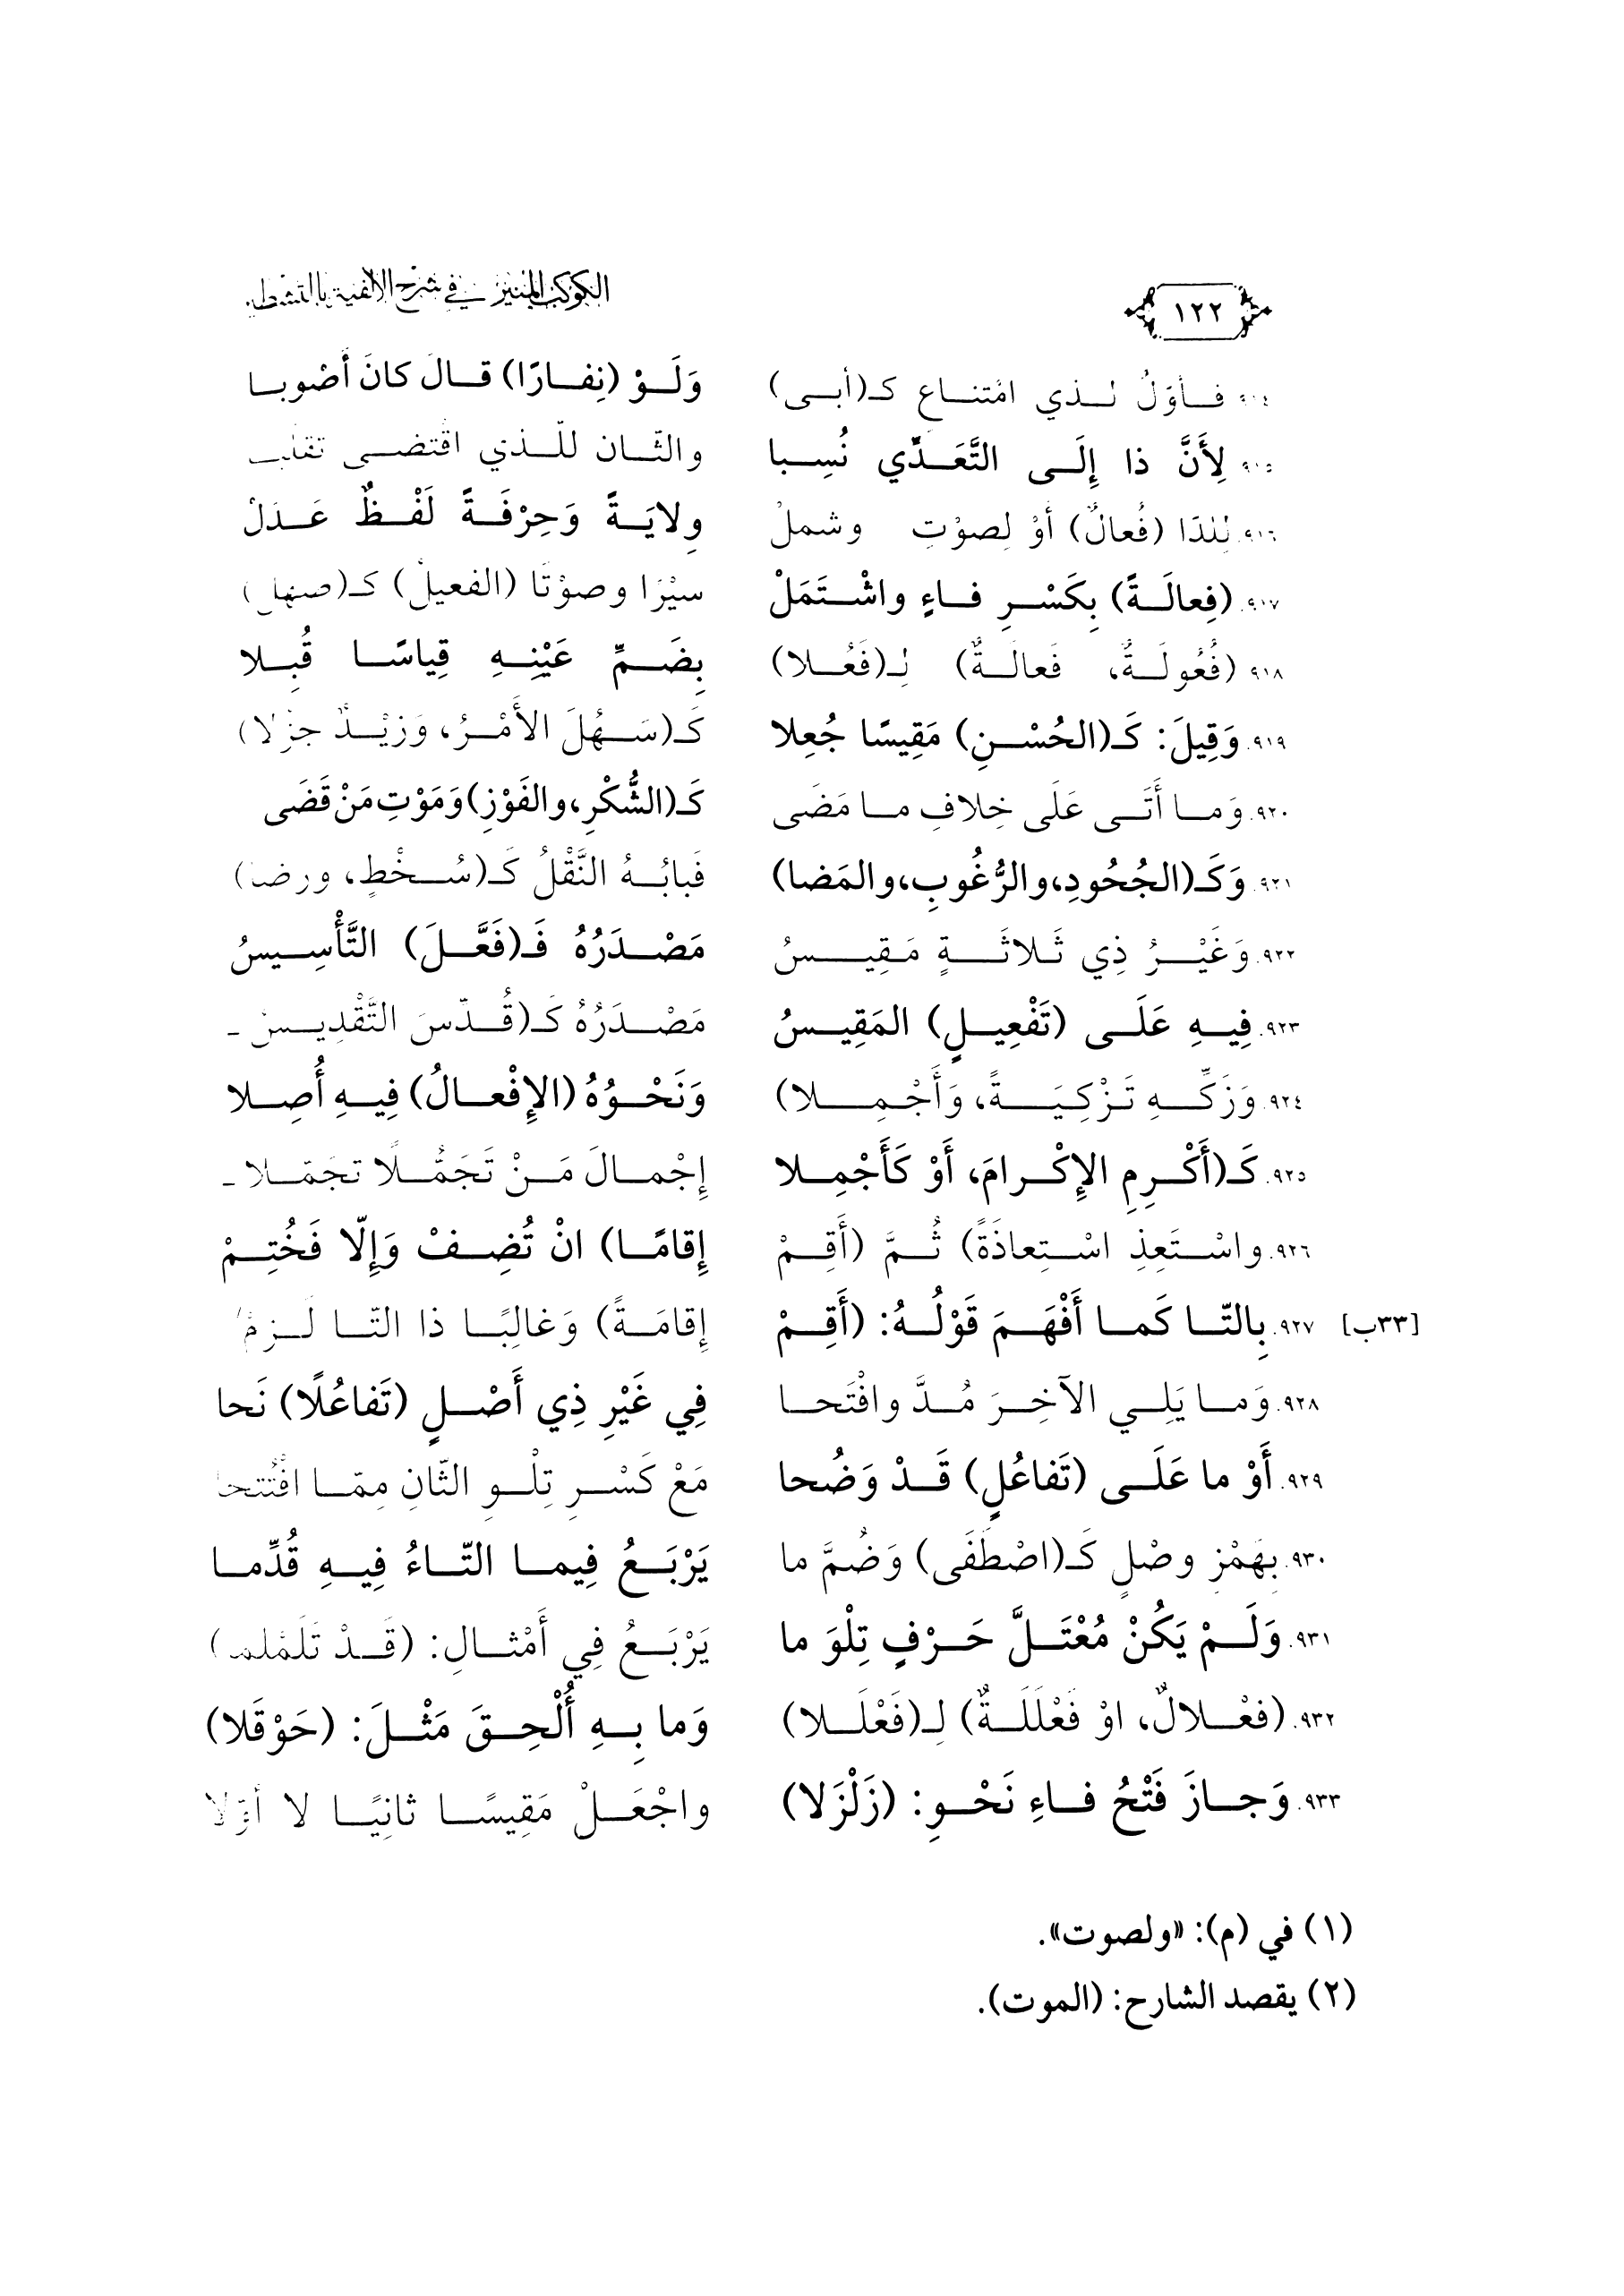 ١٢٢ الكوكب المنير في شرح الألفية بالتشطير
٩١٤. فَأَوَّلٌ لِذِي امْتِناعٍ كَـ(أَبَى) وَلَوْ (نِفارًا) قالَ كانَ أَصْوبا
٩١٥. لِأَنَّ ذا إِلَى التَّعَدِّي نُسِبا والثّانِ لِلَّذِي اقْتَضَى تَقَلُّبا
٩١٦. لِلدّا (فُعالٌ) أَوْ لِصَوْتٍ وَشَمَلْ وِلايَةً وَحِرْفَةً لَفْظٌ عَدَلْ
٩١٧. (فِعالَةً) بِكَسْرِ فاءٍ واشْتَمَلْ سَيْرًا وَصَوْتًا (الفَعِيلُ) كَـ(صَهَلْ)
٩١٨. (فُعُولَةٌ، فَعالَةٌ) لِـ(فَعُلا) بِضَمِّ عَيْنِهِ قِياسًا قُبِلا
٩١٩. وَقِيلَ: كَـ(الحُسْنِ) مَقِيسًا جُعِلا كَـ(سَهُلَ الأَمْرُ، وَزَيْدٌ جَزُلا)
٩٢٠. وَما أَتَى عَلَى خِلافِ ما مَضَى كَـ(الشُّكْرِ، والفَوْزِ) وَمَوْتِ مَنْ قَضَى
٩٢١. وَكَـ(الجُحُودِ، والرُّغُوبِ، والمَضا) فَبابُهُ النَّقْلُ كَـ(سُخْطٍ، وَرِضا)
٩٢٢. وَغَيْرُ ذِي ثَلاثَةٍ مَقِيسُ مَصْدَرُهُ فَـ(فَعَّلَ) التَّأْسِيسُ
٩٢٣. فِيهِ عَلَى (تَفْعِيلٍ) المَقِيسُ مَصْدَرُهُ كَـ(قُدِّسَ التَّقْدِيسُ -
٩٢٤. وَزَكِّهِ تَزْكِيَةً، وَأَجْمِلا) وَنَحْوُهُ (الإِفْعالُ) فِيهِ أُصِلا
٩٢٥. كَـ(أَكْرِمِ الإِكْرامَ، أَوْ كَأَجْمِلا إِجْمالَ مَنْ تَجَمُّلًا تَجَمَّلا -
٩٢٦. واسْتَعِذِ اسْتِعاذَةً) ثُمَّ (أَقِمْ إِقامًا) انْ تُضِفْ وَإِلّا فَخُتِمْ
[٣٣ب] ٩٢٧. بِالتّا كَما أَفْهَمَ قَوْلُهُ: (أَقِمْ إِقامَةً) وَغالِبًا ذا التّا لَزِمْ
٩٢٨. وَما يَلِي الآخِرَ مُدَّ وافْتَحا فِي غَيْرِ ذِي أَصْلٍ (تَفاعُلًا) نَحا
٩٢٩. أَوْ ما عَلَى (تَفاعُلٍ) قَدْ وَضُحا مَعْ كَسْرِ تِلْوِ الثّانِ مِمّا افْتُتِحا
٩٣٠. بِهَمْزِ وَصْلٍ كَـ(اصْطَفَى) وَضُمَّ ما يَرْبَعُ فِيما التّاءُ فِيهِ قُدِّما
٩٣١. وَلَمْ يَكُنْ مُعْتَلَّ حَرْفٍ تِلْوَ ما يَرْبَعُ فِي أَمْثالِ: (قَدْ تَلَمْلَما)
٩٣٢. (فِعْلالٌ، اوْ فَعْلَلَةٌ) لِـ(فَعْلَلا) وَما بِهِ أُلْحِقَ مَثْلَ: (حَوْقَلا)
٩٣٣. وَجازَ فَتْحُ فاءِ نَحْوِ: (زَلْزَلا) واجْعَلْ مَقِيسًا ثانِيًا لا أَوَّلا
(١) في (م): «ولصوت».
(٢) يقصد الشارح: (الموت).